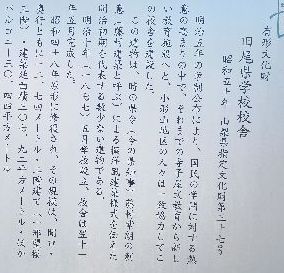 有形文化財
旧尾県学校校舎
昭和五十年 山梨県指定文化財第二十七号
明治五年の学制公布により、国民の学問に対する熱
意の高まりの中で、それまでの寺子屋式教育から新し
い教育施設へと、小形山地区の人々は一致協力してこ
の校舎を建設した。
この建物は、時の県令（今の県知事）藤村紫朗の創
意に「藤村式建築と呼ぶ」による擬洋風建築様式を伝えた
明治初期を代表する数少ない遺物である。
明治十年（一八七七）五月学校設立、校舎は翌十一
年五月完成した。
昭和四八年原形に修復され、その規模は、間口・
奥行ともに一二・七四メートル、二階建て、八部屋
二階、建築延面積二三〇・九二平方メートル
バルコニー三〇・四四平方メートル